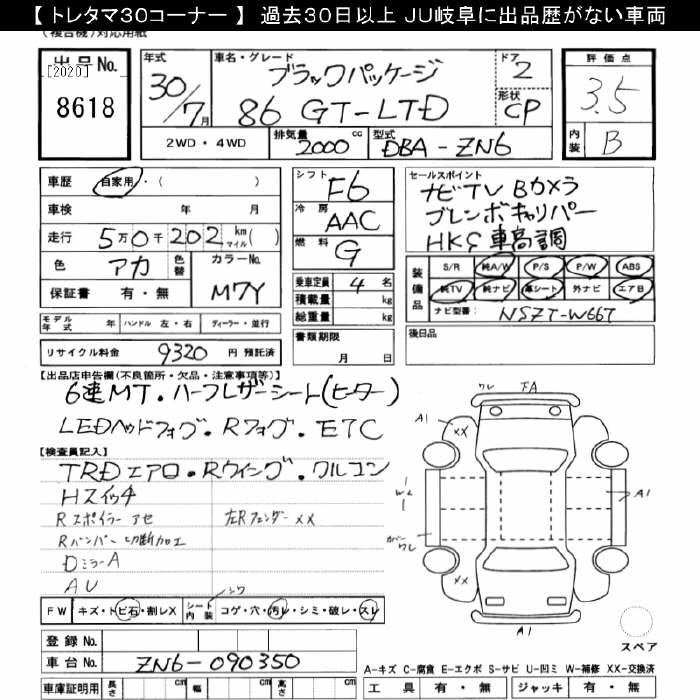 【 トレタマ30コーナー 】 過去30日以上 JU岐阜に出品歴がない車両
(複合機)対応用紙
出品No.
[2020]
8618
年式
30/7月
車名・グレード
ブラックパッケージ
86 GT-LTD
ドア
2
形状
CP
評価点
3.5
内装
B
2WD・4WD
排気量
2000 cc
型式
DBA-ZN6
車歴 自家用・( )
車検 年 月
走行 5万0千202 km マイル ( )
色 アカ 色替 カラーNo.
M7Y
保証書 有・無
シフト
F6
冷房
AAC
燃料
G
乗車定員 4 名
積載量 kg
総重量 kg
セールスポイント
ナビTV Bカメラ
ブレンボキャリパー
HKS 車高調
装備品
S/R 純A/W P/S P/W ABS
純TV 純ナビ 革シート 外ナビ エアB
ナビ型番: NSZT-W66T
モデル年式 年 ハンドル 左・右 ディーラー・並行
リサイクル料金 9320 円 預託済
書類期限
月 日
後日品
【出品店申告欄(不良箇所・欠品・注意事項等)】
6速MT・ハーフレザーシート(ヒーター)
LEDヘッドフォグ・Rフォグ・ETC
【検査員記入】
TRDエアロ・Rウイング・ワルコン
Hスイッチ
Rスポイラーアセ 左Rフェンダー××
Rバンパー切断加工
DミラーA
AU
シワ
FW キズ・トビ石・割レX シート内装 コゲ・穴・汚レ・シミ・破レ・スレ
ワレ
下A
A1
××
A1
××
A1
ワレ
スペア
登録No.
車台No. ZN6-090350
A-キズ C-腐食 E-エクボ S-サビ U-凹ミ W-補修 XX-交換済
車庫証明用 長さ cm 幅 cm 高さ cm
工具 有・無 ジャッキ 有・無